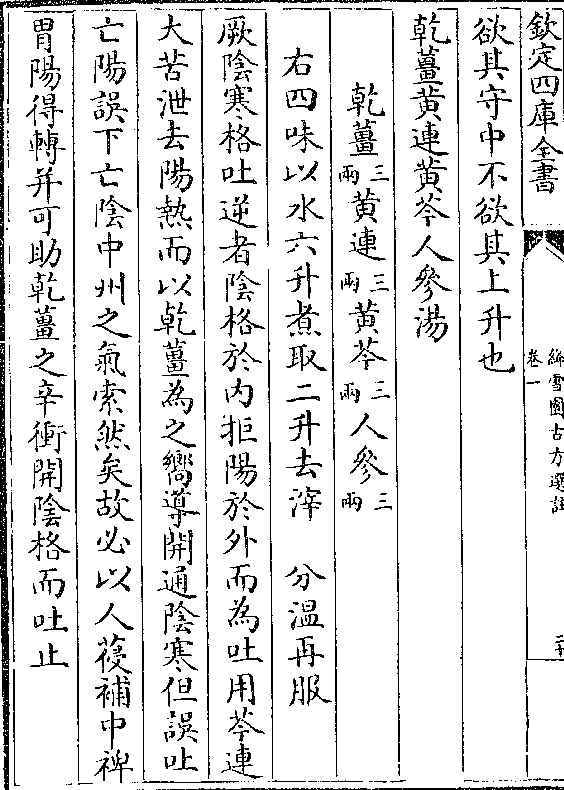 欽定四庫全書
絳雪園古方選註
卷一
欲其守中不欲其上升也
乾薑黄連黄芩人參湯
乾薑三兩黄連三兩黄芩三兩人參三兩
右四味以水六升煮取二升去滓 分溫再服
厥陰寒格吐逆者陰格於内拒陽於外而為吐用芩連
大苦泄去陽熱而以乾薑為之嚮導開通陰寒但誤吐
亡陽誤下亡陰中州之氣索然矣故必以人葠補中裨
胃陽得轉并可助乾薑之辛衝開陰格而吐止